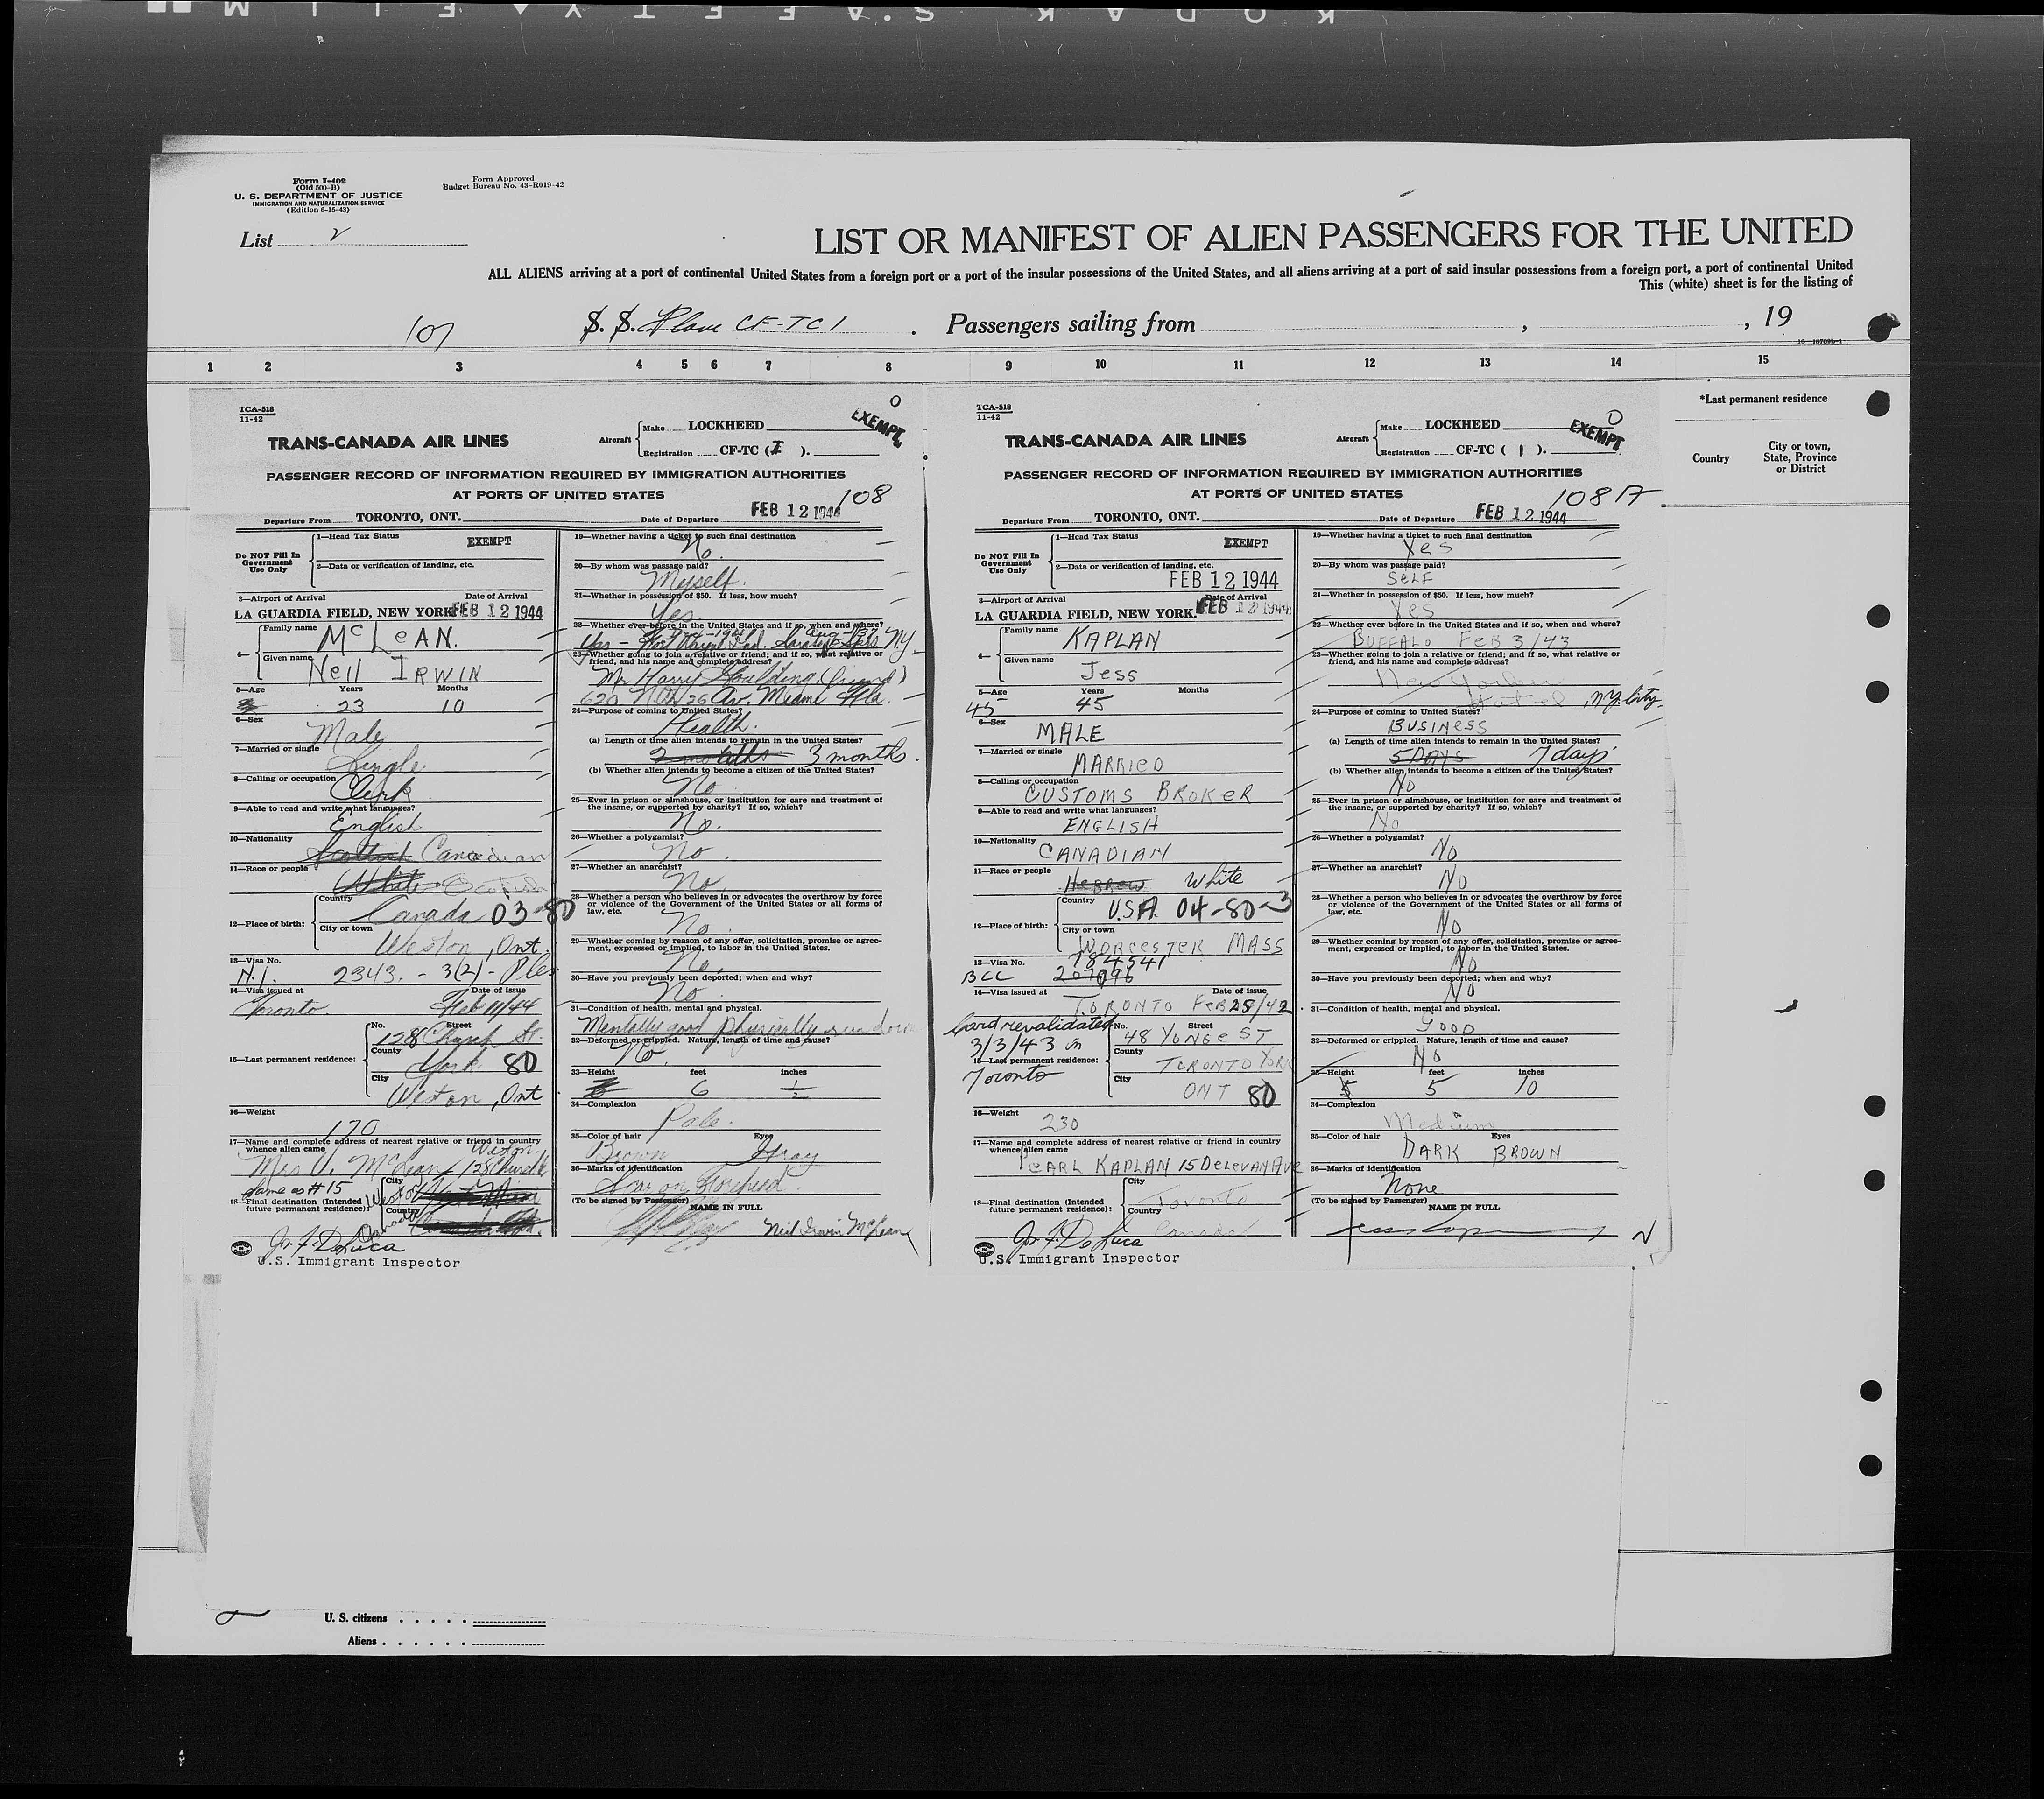 KODAK SAFETY FILM
Form I-402
(Old 500-B)
U. S. DEPARTMENT OF JUSTICE
IMMIGRATION AND NATURALIZATION SERVICE
(Edition 6-15-43)
Form Approved
Budget Bureau No. 43-R019-42
List 2
LIST OR MANIFEST OF ALIEN PASSENGERS FOR THE UNITED
ALL ALIENS arriving at a port of continental United States from a foreign port or a port of the insular possessions of the United States, and all aliens arriving at a port of said insular possessions from a foreign port, a port of continental United
This (white) sheet is for the listing of
107
S. S. Plane CF-TC1 . Passengers sailing from , , 19
1 2 3 4 5 6 7 8 9 10 11 12 13 14 15
*Last permanent residence
Country
City or town, State, Province or District
TCA-518
11-42
TRANS-CANADA AIR LINES
Aircraft
Make LOCKHEED
Registration CF-TC (I).
0
EXEMPT
PASSENGER RECORD OF INFORMATION REQUIRED BY IMMIGRATION AUTHORITIES
AT PORTS OF UNITED STATES
108
Departure From TORONTO, ONT.
Date of Departure FEB 12 1944
Do NOT Fill In Government Use Only
1—Head Tax Status EXEMPT
2—Data or verification of landing, etc.
3—Airport of Arrival Date of Arrival
LA GUARDIA FIELD, NEW YORK FEB 12 1944
4— Family name McLeAN.
Given name Neil IRWIN
5—Age Years Months
23 10
6—Sex
Male
7—Married or single
Single.
8—Calling or occupation
Clerk
9—Able to read and write what languages?
English
10—Nationality
Scottish Canadian
11—Race or people
White Scotish
12—Place of birth:
Country
Canada 03-80
City or town
Weston, Ont.
13—Visa No.
N.I. 2343. - 3(2) -
14—Visa issued at Date of issue
Toronto. Feb 11/44
15—Last permanent residence:
No. Street
128 Church St.
County
York 80
City
Weston, Ont
16—Weight
170
17—Name and complete address of nearest relative or friend in country whence alien came
Weston.
Mrs V. McLean 128 Church
same as #15
18—Final destination (Intended future permanent residence):
City
Weston
Country
Canada
Jos. F. DeLuca
U.S. Immigrant Inspector
19—Whether having a ticket to such final destination
No.
20—By whom was passage paid?
Myself.
21—Whether in possession of $50. If less, how much?
Yes
22—Whether ever before in the United States and if so, when and where?
Yes - Fort Wayne Ind. Saratoga Sprs. N.Y.
23—Whether going to join a relative or friend; and if so, what relative or friend, and his name and complete address?
Mr Harry Goulding (friend)
620 N.W. 26 Av. Miami Fla.
24—Purpose of coming to United States?
Health.
(a) Length of time alien intends to remain in the United States?
2 months 3 months.
(b) Whether alien intends to become a citizen of the United States?
No
25—Ever in prison or almshouse, or institution for care and treatment of the insane, or supported by charity? If so, which?
No.
26—Whether a polygamist?
No.
27—Whether an anarchist?
No.
28—Whether a person who believes in or advocates the overthrow by force or violence of the Government of the United States or all forms of law, etc.
No.
29—Whether coming by reason of any offer, solicitation, promise or agreement, expressed or implied, to labor in the United States.
No.
30—Have you previously been deported; when and why?
No.
31—Condition of health, mental and physical.
Mentally good physically run down
32—Deformed or crippled. Nature, length of time and cause?
No.
33—Height feet inches
6 1/2
34—Complexion
Pale.
35—Color of hair Eyes
Brown Gray
36—Marks of identification
Scar on Forehead.
(To be signed by Passenger) NAME IN FULL
Neil Irwin McLean
TCA-518
11-42
TRANS-CANADA AIR LINES
Aircraft
Make LOCKHEED
Registration CF-TC ( 1 ).
0
EXEMPT
PASSENGER RECORD OF INFORMATION REQUIRED BY IMMIGRATION AUTHORITIES
AT PORTS OF UNITED STATES
108A
Departure From TORONTO, ONT.
Date of Departure FEB 12 1944
Do NOT Fill In Government Use Only
1—Head Tax Status EXEMPT
2—Data or verification of landing, etc.
FEB 12 1944
3—Airport of Arrival Date of Arrival
LA GUARDIA FIELD, NEW YORK. FEB 12 1944
4— Family name KAPLAN
Given name Jess
5—Age Years Months
45 45
6—Sex
MALE
7—Married or single
MARRIED
8—Calling or occupation
CUSTOMS BROKER
9—Able to read and write what languages?
ENGLISH
10—Nationality
CANADIAN
11—Race or people
HEBREW White
12—Place of birth:
Country
U.S.A. 04-80-3
City or town
WORCESTER MASS
13—Visa No. 784541
BCC 207096
14—Visa issued at Date of issue
TORONTO FEB 25/42.
Card revalidated
3/3/43 in
Toronto
15—Last permanent residence:
No. Street
48 YONGE ST
County
TORONTO YORK
City
ONT 80
16—Weight
230
17—Name and complete address of nearest relative or friend in country whence alien came
PEARL KAPLAN 15 DELEVAN AVE
18—Final destination (Intended future permanent residence):
City
Toronto
Country
Canada
Jos. F. DeLuca
U.S. Immigrant Inspector
19—Whether having a ticket to such final destination
Yes
20—By whom was passage paid?
SELF
21—Whether in possession of $50. If less, how much?
Yes
22—Whether ever before in the United States and if so, when and where?
BUFFALO FEB 3/43
23—Whether going to join a relative or friend; and if so, what relative or friend, and his name and complete address?
New Yorker
Hotel, N.Y. City.
24—Purpose of coming to United States?
BUSINESS
(a) Length of time alien intends to remain in the United States?
5 DAYS 7 days
(b) Whether alien intends to become a citizen of the United States?
No
25—Ever in prison or almshouse, or institution for care and treatment of the insane, or supported by charity? If so, which?
No
26—Whether a polygamist?
No
27—Whether an anarchist?
No
28—Whether a person who believes in or advocates the overthrow by force or violence of the Government of the United States or all forms of law, etc.
No
29—Whether coming by reason of any offer, solicitation, promise or agreement, expressed or implied, to labor in the United States.
No
30—Have you previously been deported; when and why?
No
31—Condition of health, mental and physical.
GOOD
32—Deformed or crippled. Nature, length of time and cause?
No
33—Height feet inches
5 5 10
34—Complexion
Medium
35—Color of hair Eyes
DARK BROWN
36—Marks of identification
None
(To be signed by Passenger) NAME IN FULL
Jess Kaplan
U. S. citizens
Aliens